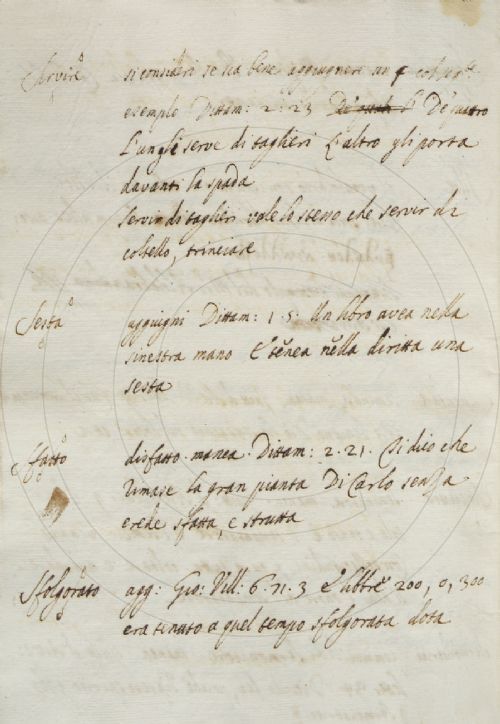 Servire si consideri se sia bene aggiugnere un § col seg.te
esempio Dittam: 2: 23 De' quatro
L'un gli serve di taglieri L'altro gli porta
davanti la spada
Servir di taglieri vale lo stesso che servir di
coltello, trinciare
Sesta aggiugni Dittam: 1. 5. Un libro avea nella
sinestra mano E tenea nella diritta una
sesta
Sfatto disfatto. manca. Dittam: 2. 21. Di dico che
rimase la gran pianta Di Carlo senza
erede sfatta, e strutta
Sfolgorato agg: Gio: Vill: 6. 71. 3 E libbre 200, o, 300
era tenuto a quel tempo sfolgorata dota